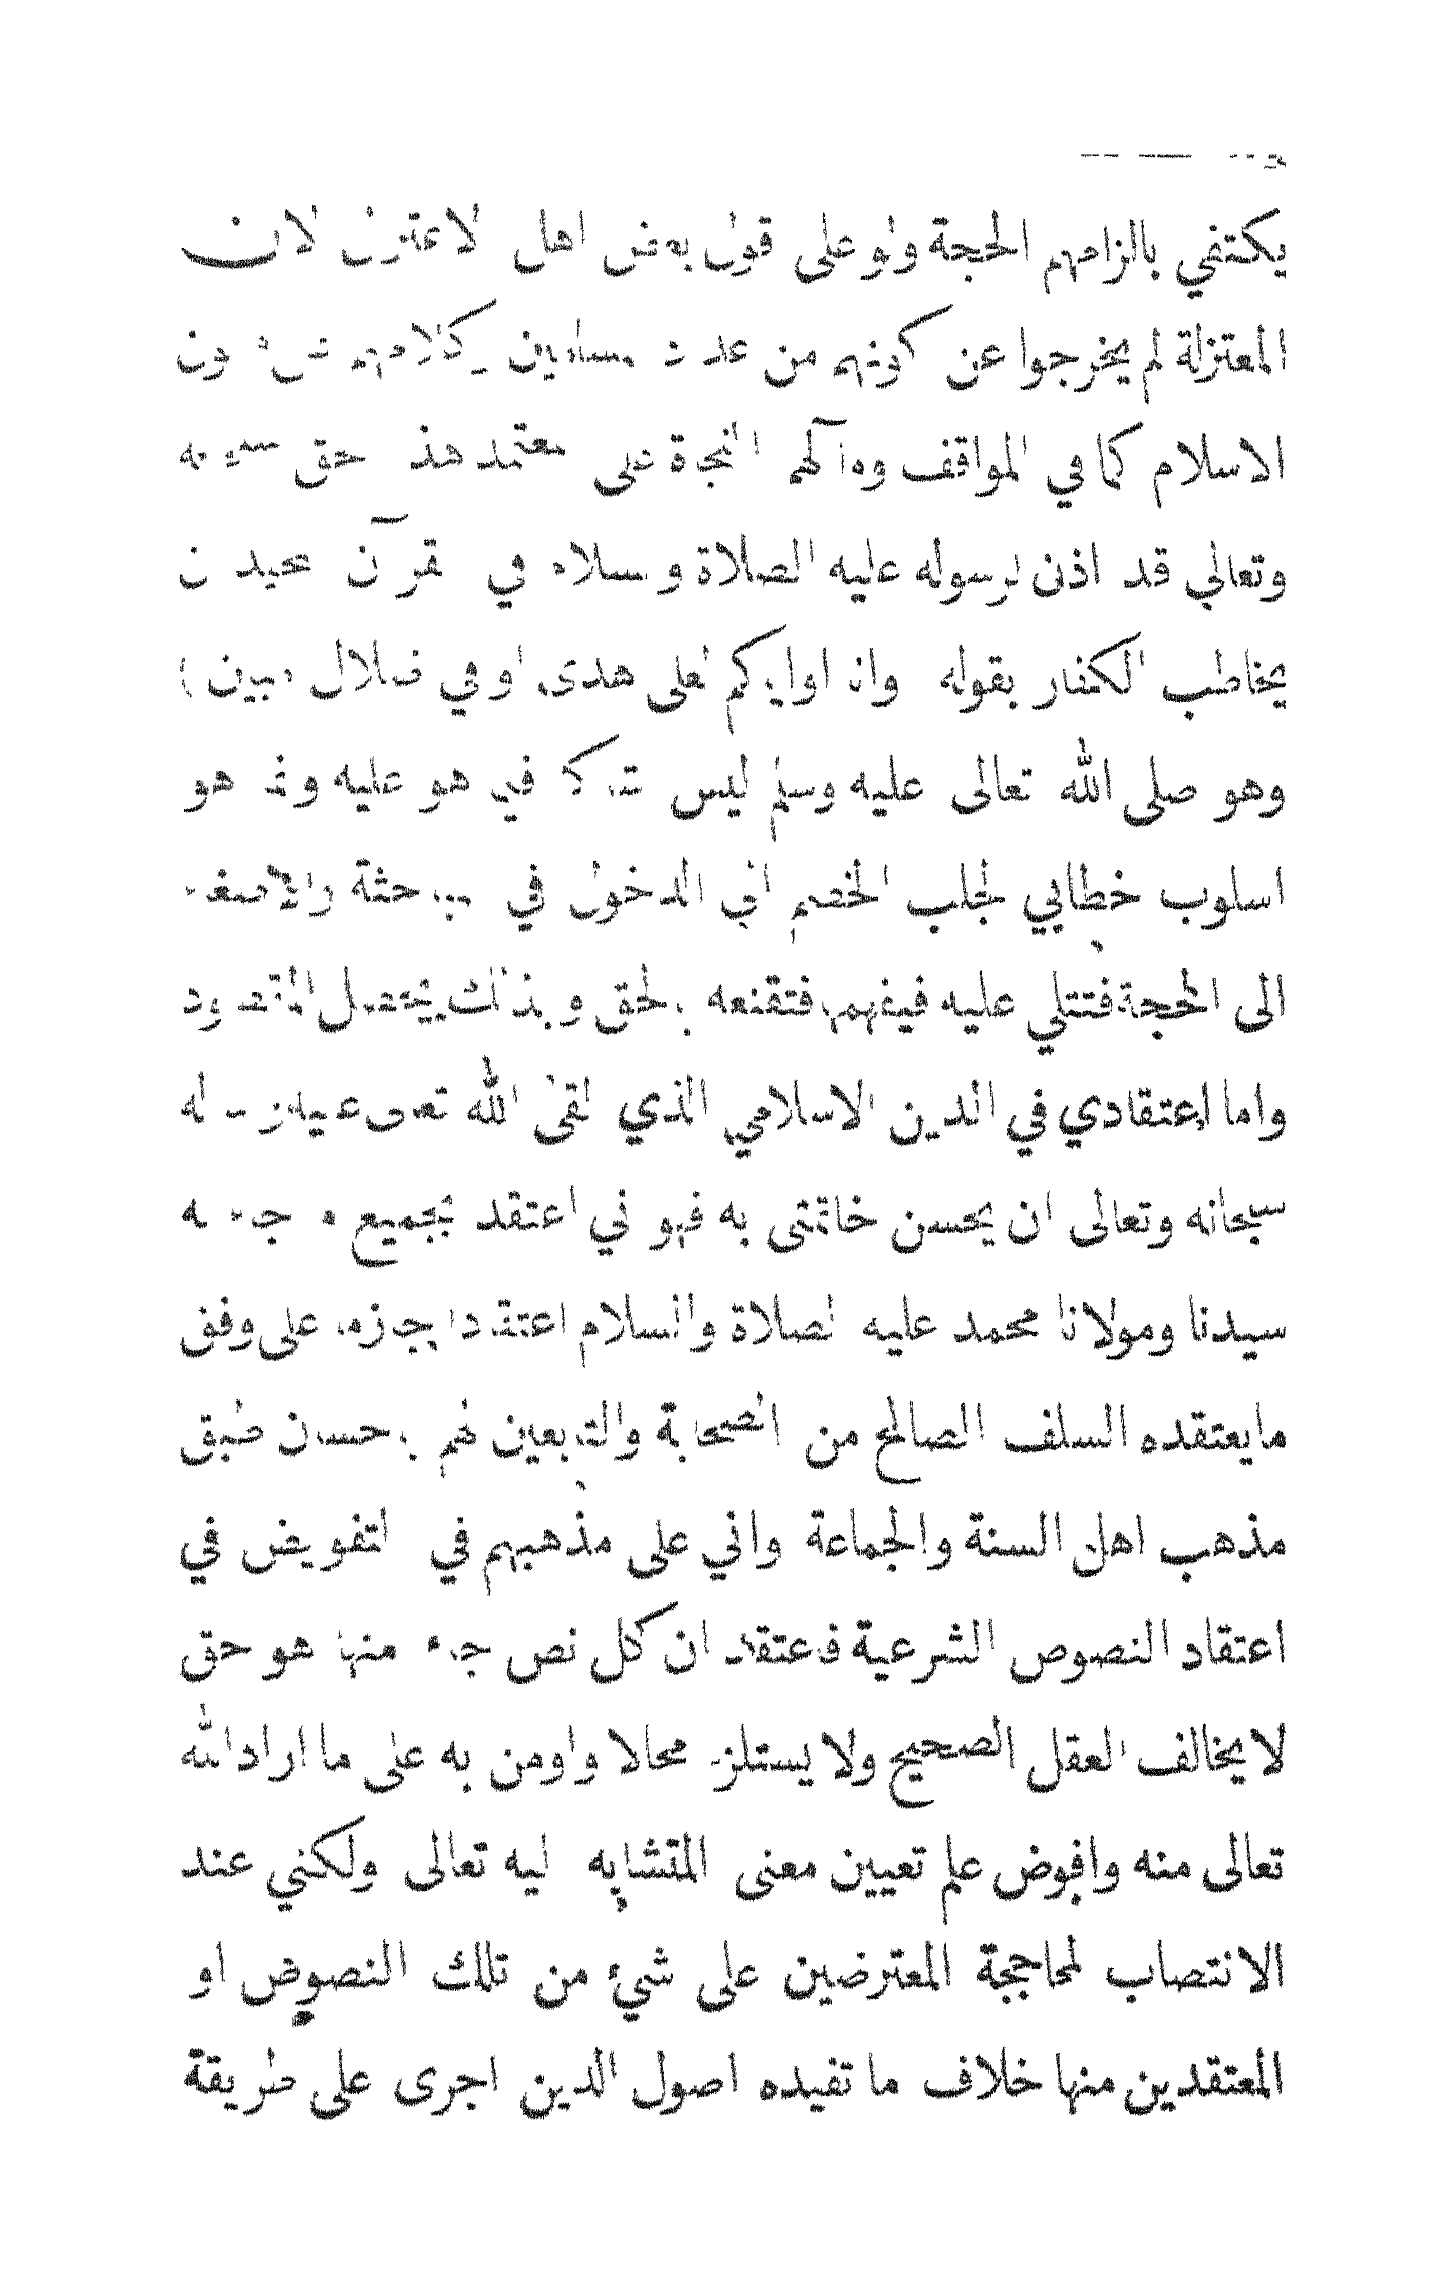 يكتفي بالزامهم الحجة ولو على قول بعض اهل الاعتزال لان
المعتزلة لم يخرجوا عن كونهم من علماء مسلمين كلامهم دون
الاسلام كما في المواقف ومآلهم النجاة على معتمد هذا حق سبحانه
وتعالى قد اذن لرسوله عليه الصلاة والسلام في القرآن المجيد ان
يخاطب الكفار بقوله وانا او اياكم لعلى هدى او في ضلال مبين )
وهو صلى الله تعالى عليه وسلم ليس شاكا فيما هو عليه وانما هو
اسلوب خطابي لجلب الخصم الى الدخول في المباحثة والاصغاء
الى الحجة فتتلى عليه فيفهمها فتقنعه بالحق وبذلك يحصل المقصود
واما اعتقادي في الدين الاسلامي الذي القى الله تعالى عليه
سبحانه وتعالى ان يحسن خاتمتى به فهو اني اعتقد بجميع ما جاء به
سيدنا ومولانا محمد عليه الصلاة والسلام اعتقادا جازما على وفق
ما يعتقده السلف الصالح من الصحابة والتابعين لهم باحسان طبق
مذهب اهل السنة والجماعة واني على مذهبهم في التفويض في
اعتقاد النصوص الشرعية فاعتقد ان كل نص جاء منها هو حق
لا يخالف العقل الصحيح ولا يستلزم محالا واومن به على ما اراد الله
تعالى منه وافوض علم تعيين معنى المتشابه اليه تعالى ولكني عند
الانتصاب لمحاججة المعترضين على شيء من تلك النصوص او
المعتقدين منها خلاف ما تفيده اصول الدين اجرى على طريقة